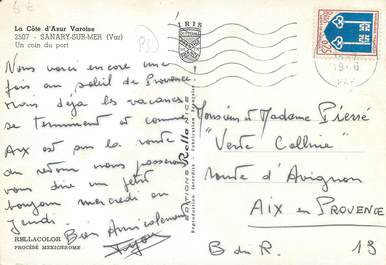 6 €
La Côte d'Azur Varoise
2307 - SANARY-SUR-MER (Var)
Un coin du port
IRIS
Nous voici encore une
fois au soleil de Provence
Mais déjà les vacances
se terminent et comme
Aix est sur la route
du retour nous passerons
vous dire un petit
bonjour mercredi ou
jeudi.
Bien Amicalement
RELLACOLOR
PROCÉDÉ MEXICHROME
EDITIONS Rella NICE
Reproduction interdite
Monsieur et Madame Pierré
"Verte Colline"
route d'Avignon
Aix en PROVENCE
B du R. 13